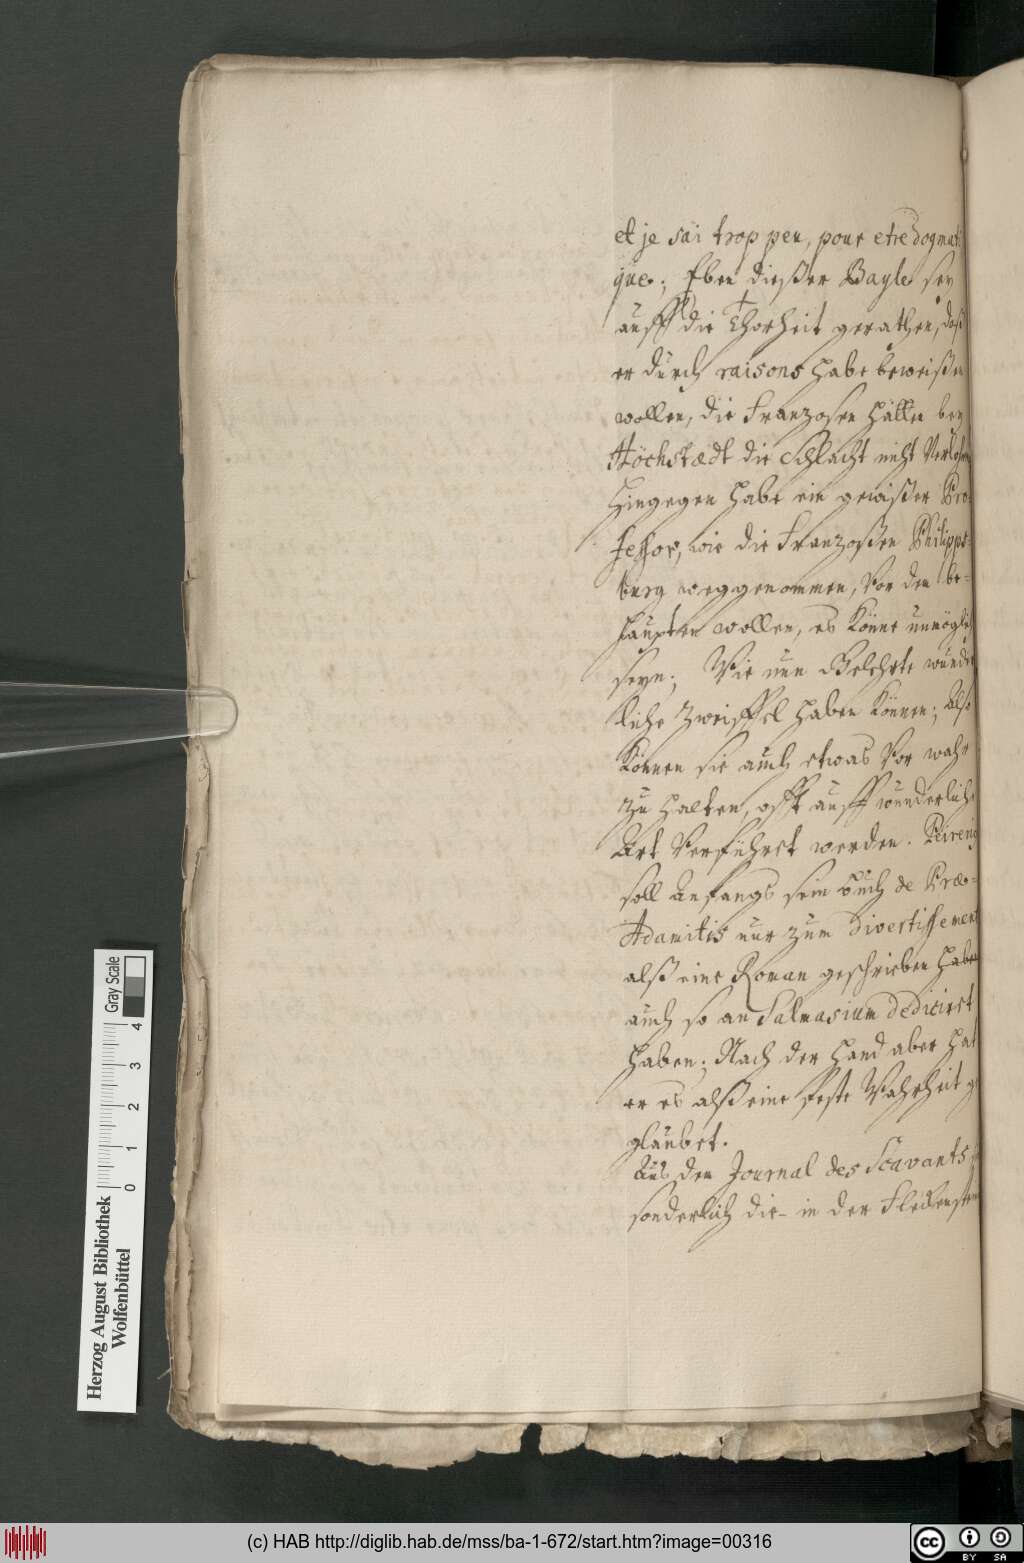 et je sai trop peu, pour etre dogmati
que; Eben dießer Bayle sey
auff die Thorheit gerathen, daß
er durch raisons habe beweißen
wollen, die Franzosen hätten bey
Höchstædt die Schlacht nicht Verlohren
hingegen habe ein gewißer Pro-
fessor, wie die Franzoßen Philipps-
burg weggenommen, Vor dem be-
haupten wollen, es könne unmöglich
seyn; Wie nun Gelehrte wunder
liche Zweiffel haben können; Also
können sie auch etwas Vor wahr
zu halten, offt auff wunderliche
Art Verführet werden.
soll Anfangs sein buch de Præ-
Adamitis nur zum Divertissement
alß eine Roman geschrieben haben
auch so an Salmasium dediciret
haben; Nach der Hand aber hat
er es alß eine feste Wahrheit ge
glaubet.
Aus den Journal des Scavants
sonderlich die in der
Herzog August Bibliothek
Wolfenbüttel
Gray Scale
0 1 2 3 4
(c) HAB http://diglib.hab.de/mss/ba-1-672/start.htm?image=00316
cc BY SA